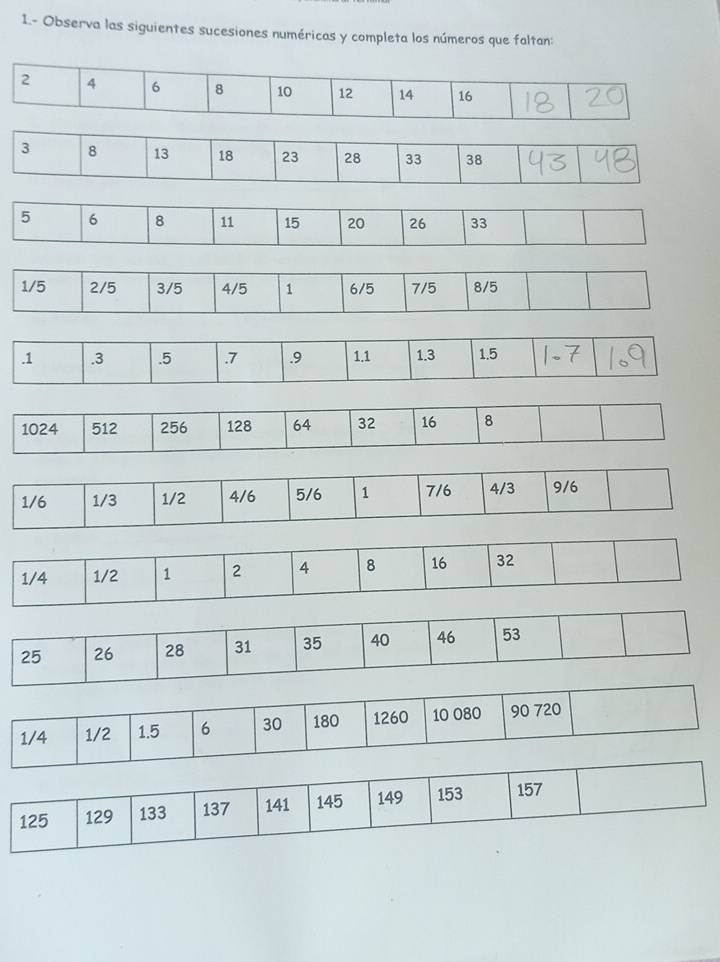 1.- Observa las siguientes sucesiones numéricas y completa los números que faltan:
2 4 6 8 10 12 14 16 18 20
3 8 13 18 23 28 33 38 43 48
5 6 8 11 15 20 26 33
1/5 2/5 3/5 4/5 1 6/5 7/5 8/5
.1 .3 .5 .7 .9 1.1 1.3 1.5 1.7 1.9
1024 512 256 128 64 32 16 8
1/6 1/3 1/2 4/6 5/6 1 7/6 4/3 9/6
1/4 1/2 1 2 4 8 16 32
25 26 28 31 35 40 46 53
1/4 1/2 1.5 6 30 180 1260 10 080 90 720
125 129 133 137 141 145 149 153 157